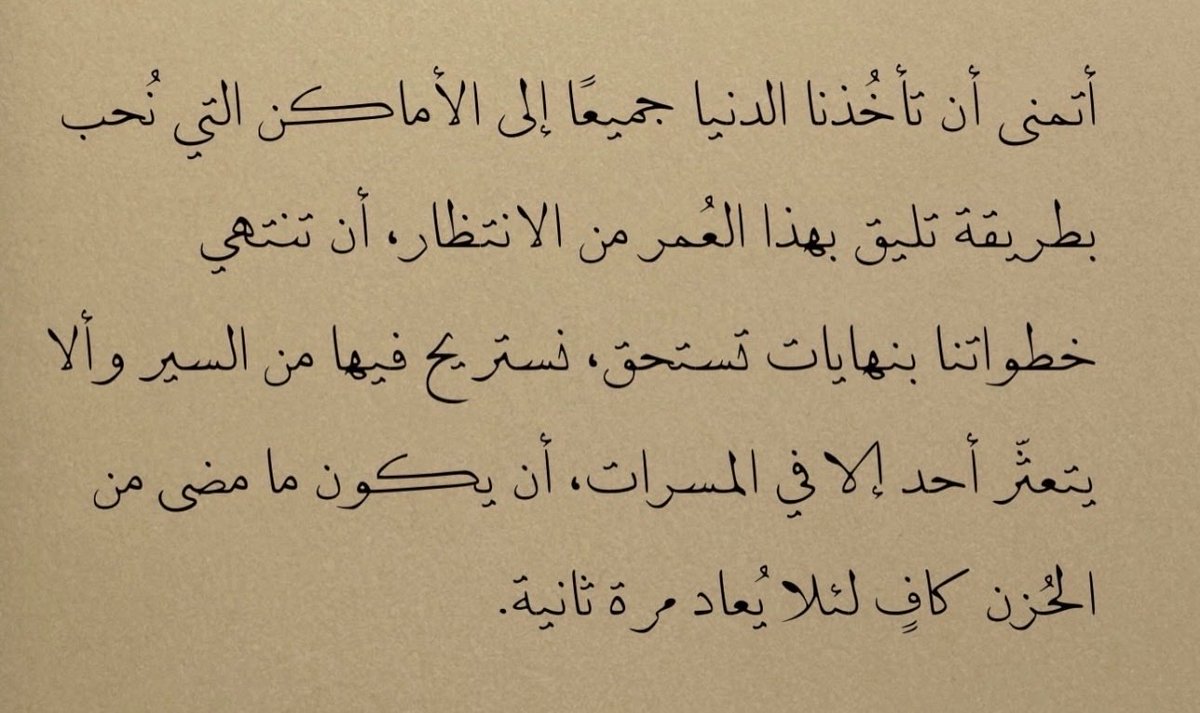 أتمنى أن تأخُذنا الدنيا جميعًا إلى الأماكن التي نُحب
بطريقة تليق بهذا العُمر من الانتظار، أن تنتهي
خطواتنا بنهايات تستحق، نستريح فيها من السير وألا
يتعثّر أحد إلا في المسرات، أن يكون ما مضى من
الحُزن كافٍ لئلا يُعاد مرة ثانية.